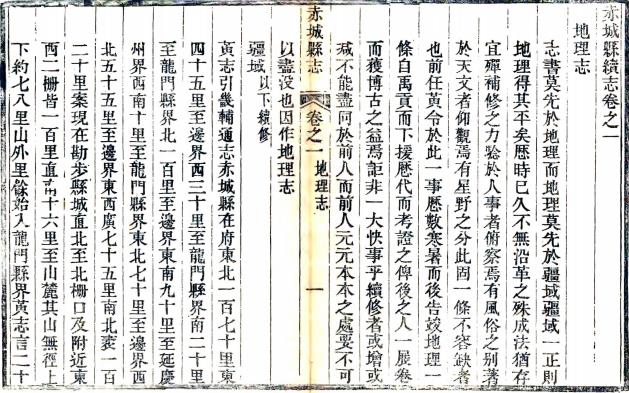 赤城縣續志卷之一
地理志
志書莫先於地理而地理莫先於疆域疆域一正則
地理得其平矣歷時已久不無沿革之殊成法猶存
宜殫補修之力驗於人事者俯察焉有風俗之別著
於天文者仰觀焉有星野之分此固一條不容缺者
也前任黃令於此一事歷數寒暑而後告竣地理一
條自禹貢而下援歷代而考證之俾後之人一展卷
而獲博古之益焉詎非一大快事乎續修者或增或
減不能盡同於前人而前人元元本本之處要不可
赤城縣志
卷之一 地理志
一
以盡沒也因作地理志
疆域以下續修
黃志引畿輔通志赤城縣在府東北一百七十里東
四十五里至邊界西三十里至龍門縣界南二十里
至龍門縣界北一百里至邊界東南九十里至延慶
州界西南十里至龍門縣界東北七十里至邊界西
北五十五里至邊界東西廣七十五里南北袤一百
二十里案現在勘步縣城直北至北柵口及附近東
西二柵皆一百里直南十六里至山麓其山無徑上
下約七八里山外里餘始入龍門縣界黃志言二十